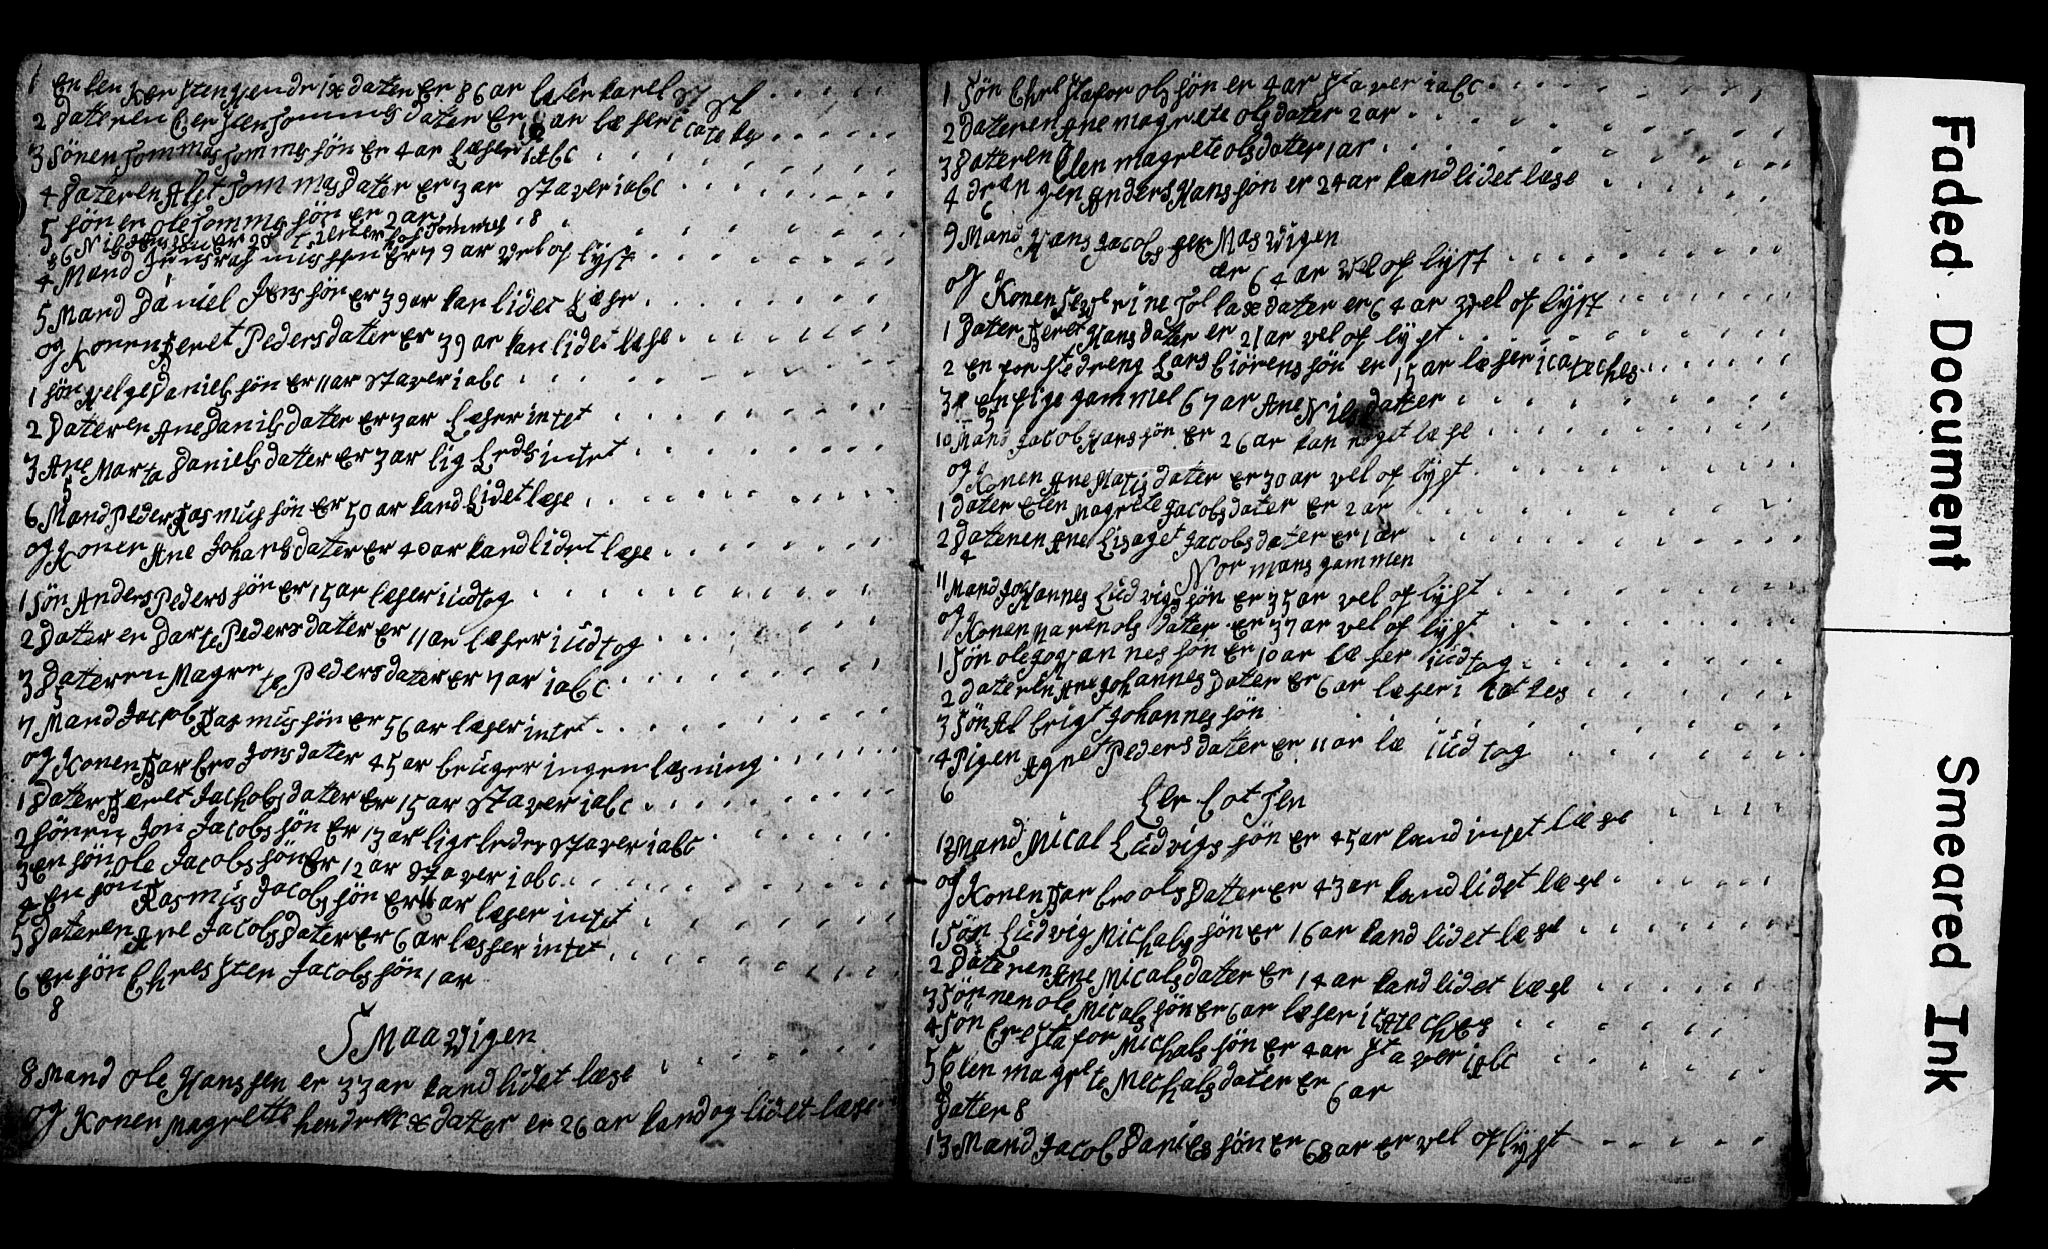 1 En ken Kersten Hendrix dater Er 86 ar
2 Dateren Bersten Tommes dater Er ar læser i cateky
3 Sönen Tommas Tommes sön Er 4 ar Læser i abc
4 Dateren Alet Tommas Dater er 3 ar staver i abc
5 sön er ole Tommes sön er 2 ar
6 Nils sön er 20 tiener hos Tommes 8
4 Mand Jens rasmussen Er 79 ar vel op lyst
5 Mand Daniel Jens sön er 39 ar kan lidet Læse
og Konen Beret Peders dater er 39 ar kan lidet læse
1 sön Helge Daniels sön er 11 ar staver i abc
2 Dateren Ane Daniels dater er 3 ar Læser intet
3 Ane Marta Daniels datter er 3 ar lig Ledes intet
5
6 Mand Peder Rasmus sön Er 50 ar kand Lidet læse
og Konen Ane Johans dater er 40 ar kand lidet læse
1 Sön Anders Peders sön er 15 ar læser i udtog
2 Dater en Darte Peders dater er 11 ar læser i udtog
3 Dateren Magrete Peders dater er 7 ar i abc
5
7 Mand Jacob Rasmus sön er 56 ar læser intet
og Konen Barbro Jons dater 45 ar bruger ingen læsning
1 Dater Beret Jachobs dater er 15 ar staver i abc
2 Sönen Jon Jacobs sön er 13 ar lige ledes staver i abc
3 en sön ole Jacobs sön Er 12 ar staver i abc
4 en sön Rasmus Jacobs sön er 11 ar læser intet
5 Dateren Ane Jacobs Dater er 6 ar læser intet
6 en sön Chressten Jacobs sön 1 ar
8
SMaavigen
8 Mand ole Hanssen er 33 ar kand lidet læse
og Konen Magrette hendrix datter er 26 ar kand og lidet læse
1 Sön Chrestafor ols sön er 4 ar staver i abc
2 Dateren Ane magrete ols dater 2 ar
3 Datteren Elen magrete ols datter 1 ar
4 drængen Anders Hans sön er 24 ar kand lidet læse
6
9 Mand Hans Jacobs sen Masvigen
ær 64 ar vel op lyst
og Konen dater er 64 ar vel op lyst
1 Dater Beret Hans dater er 21 ar vel op lyst
2 en for ste dreng Lars biörens sön er 15 ar læser i cateches
3 En pige gammel 67 ar Ane Nils datter
5
10 Mand Jacob Hans sön er 26 ar kan noget læse
og Konen Ane Matis dater er 30 ar vel op lyst
1 dater Elen Magrete Jacobs dater er 2 ar
2 Dateren Ane Lisaget Jacobs dater er 1 ar
4
Normans gammen
11 Mand Johannes Ludvigs sön er 35 ar vel op lyst
og Konen Maren ols dater er 37 ar vel op lyst
1 Sön ole Johannes sön er 10 ar læser i udtog
2 dateren Ane Johannes Dater Er 6 ar læser i
3 Sön Albrigt Johannes sön
4 Pigen Agnet Peders dater er 11 ar læ i udtog
6
Lerbotsen
12 Mand Mical Ludvigs sön er 45 ar kand intet læse
og Konen Barbro ols Dater er 43 ar kand lidet læse
1 Sön Ludvig Michals sön er 16 ar kand lidet læse
2 Dateren Ane Micals datter er 14 ar kand lidet læse
3 Sönnen ole Micals sön er 6 ar læser i cateches
4 Sön Crestafor Michals sön er 4 ar staver i abc
5 Elen magrete Mechals dater er 6 ar
Datter 8
13 Mand Jacob Daniels sön er 68 ar er vel oplyst
Faded Document
Smeared Ink